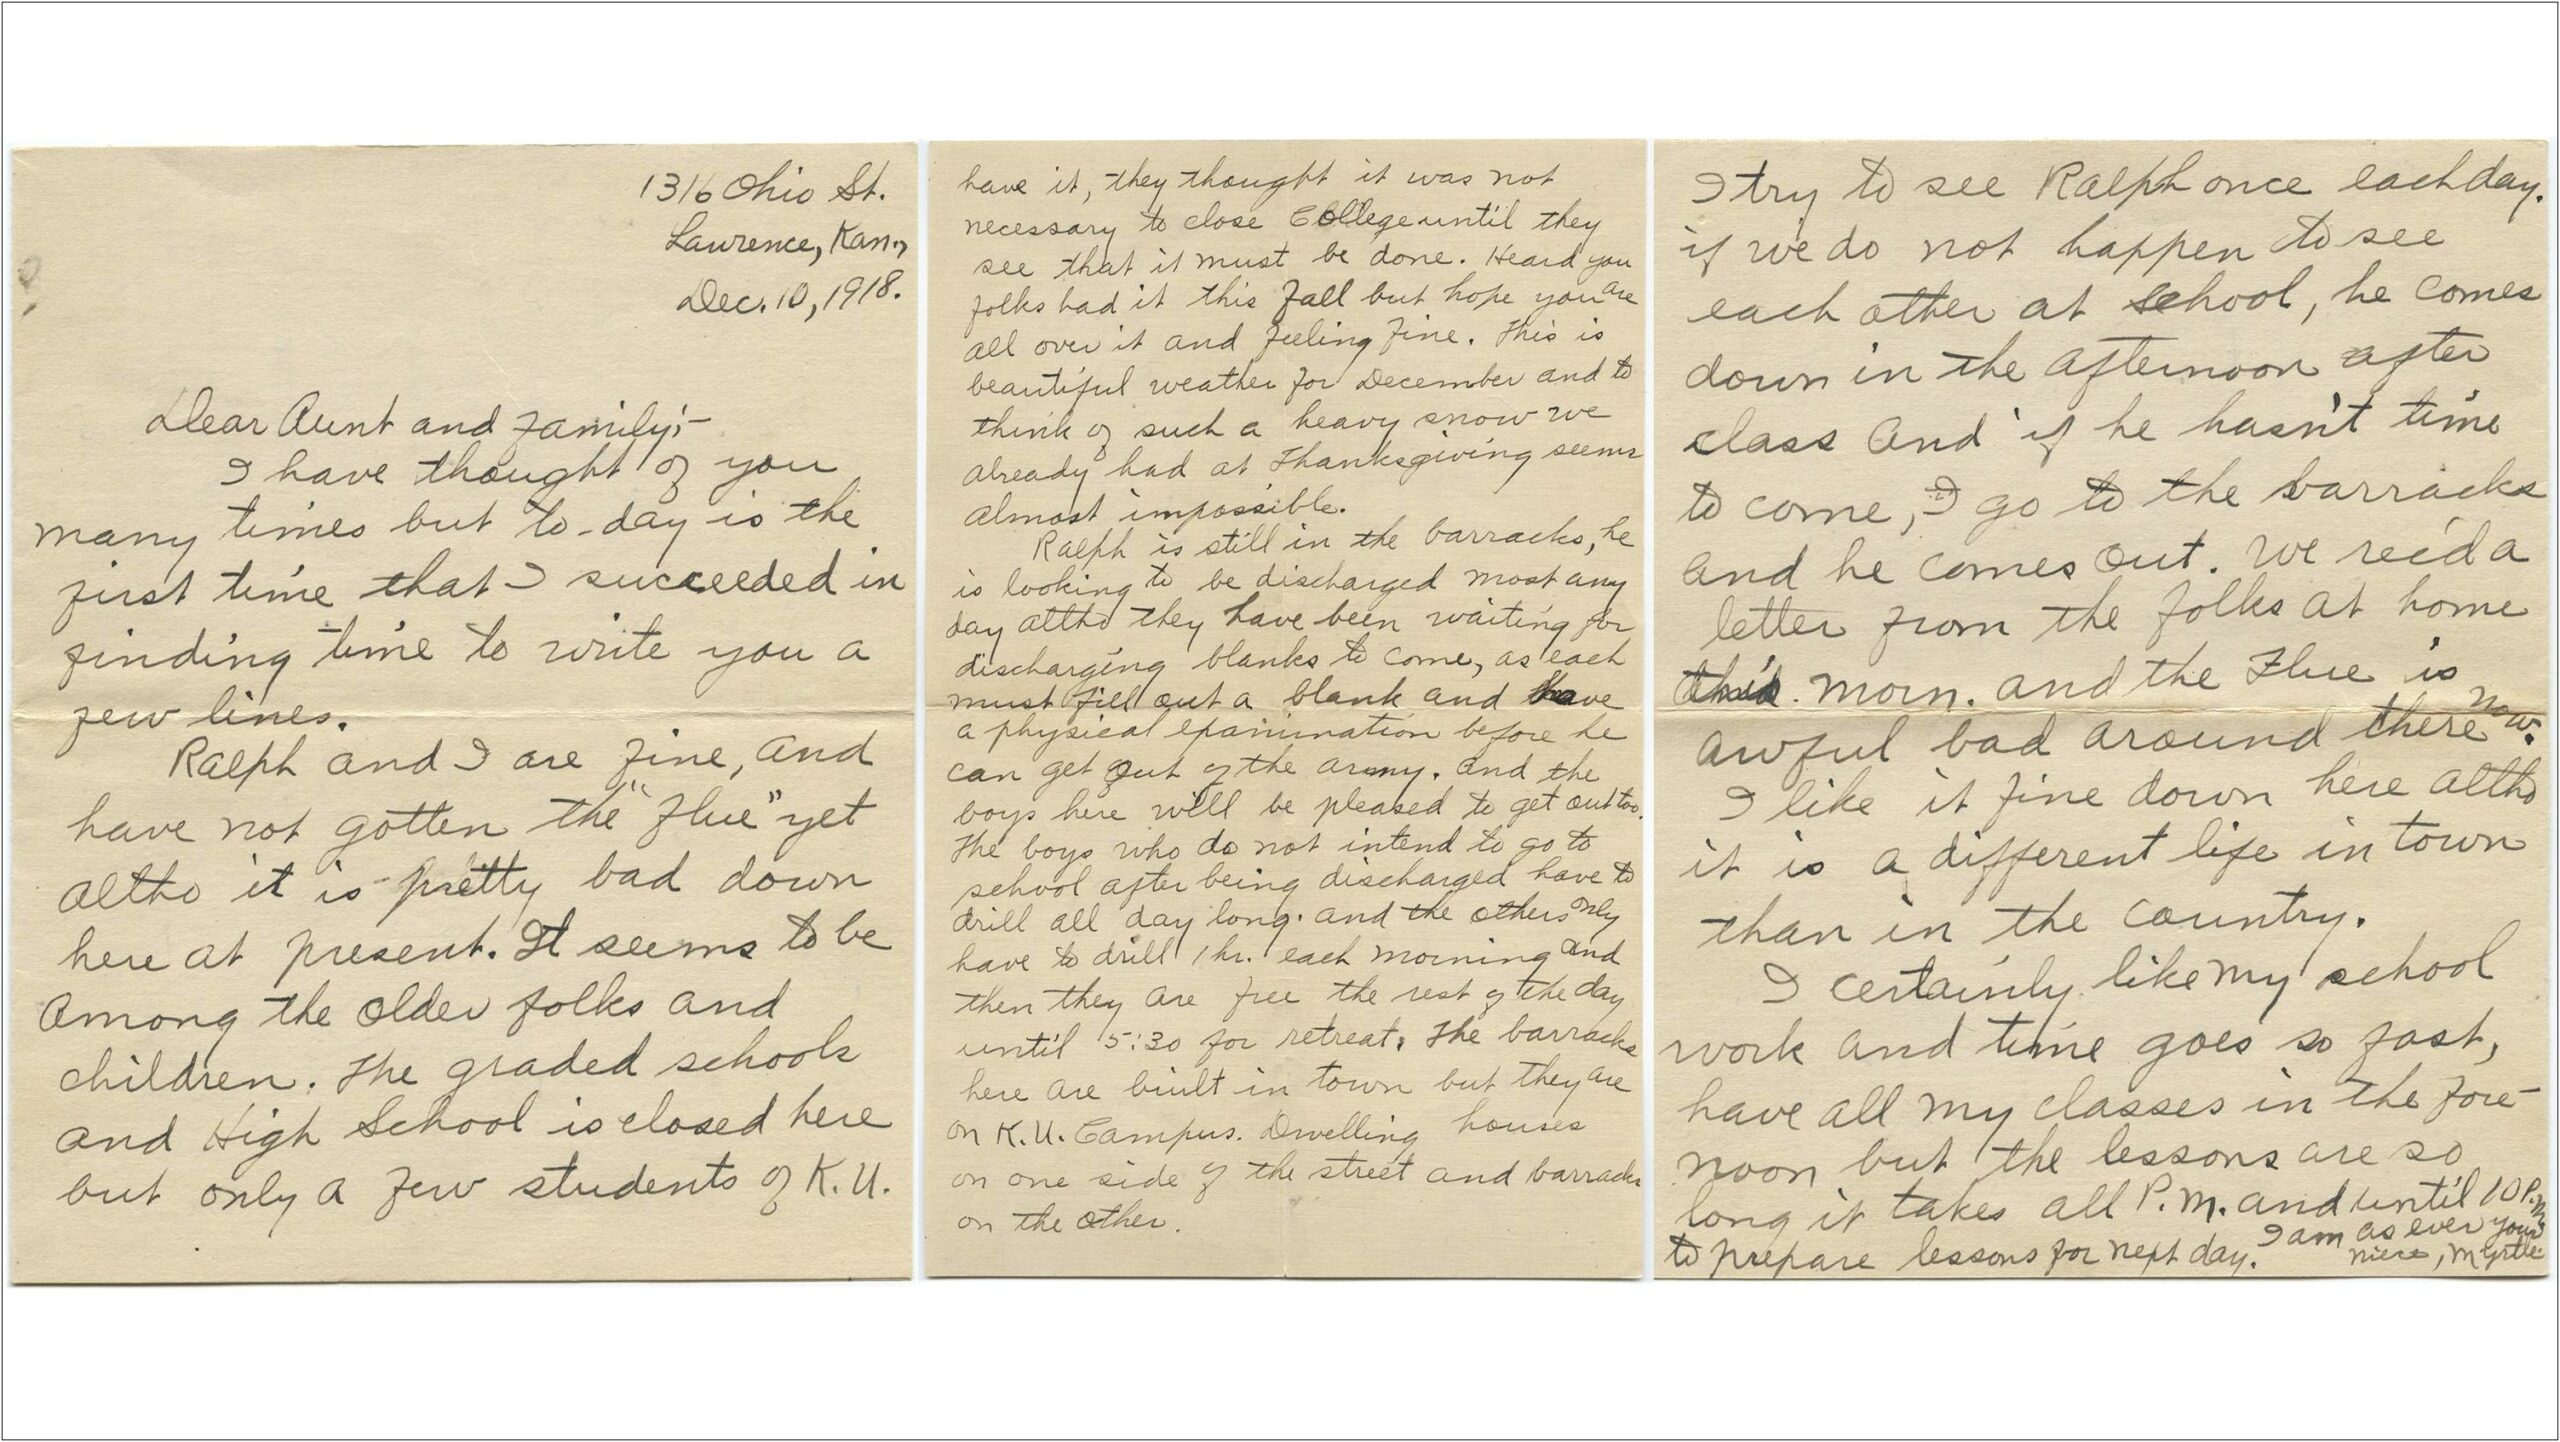 1316 Ohio St.
Lawrence, Kan.,
Dec. 10, 1918.
Dear Aunt and family;-
I have thought of you
many times but to-day is the
first time that I succeeded in
finding time to write you a
few lines.
Ralph and I are fine, and
have not gotten the "Flue" yet
altho it is pretty bad down
here at present. It seems to be
among the older folks and
children. The graded schools
and High School is closed here
but only a few students of K.U.
have it, they thought it was not
necessary to close College until they
see that it must be done. Heard you
folks had it this fall but hope you are
all over it and feeling fine. This is
beautiful weather for December and to
think of such a heavy snow we
already had at Thanksgiving seems
almost impossible.
Ralph is still in the barracks, he
is looking to be discharged most any
day altho they have been waiting for
discharging blanks to come, as each
must fill out a blank and have
a physical examination before he
can get out of the army. and the
boys here will be pleased to get out too.
The boys who do not intend to go to
school after being discharged have to
drill all day long. and the others only
have to drill 1 hr. each morning and
then they are free the rest of the day
until 5:30 for retreat. The barracks
here are built in town but they are
on K.U. Campus. Dwelling houses
on one side of the street and barracks
on the other.
I try to see Ralph once each day.
if we do not happen to see
each other at school, he comes
down in the afternoon after
class and if he hasn't time
to come, I go to the barracks
and he comes out. We rec'd a
letter from the folks at home
this. morn. and the Flue is
awful bad around there now.
I like it fine down here altho
it is a different life in town
than in the country.
I certainly like my school
work and time goes so fast,
have all my classes in the fore-
noon but the lessons are so
long it takes all P.M. and until 10 P.M.
to prepare lessons for next day. I am as ever your
niece, Myrtle